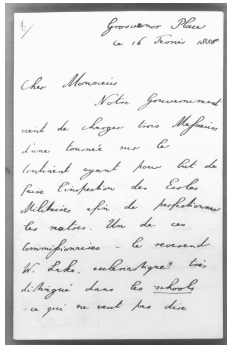 Grosvenor Place
ce 16 Fevrier 1856
Cher Monsieur
Notre Gouvernement
vient de charger trois Messieurs
d'une tournée sur le
Continent ayant pour but de
faire l'inspection des Ecoles
Militaires afin de perfectionner
les notres. Un de ces
Commissionaires - le reverend
W. Lake, ecclesiastique très
distingué dans les schools
- ce qui ne veut pas dire